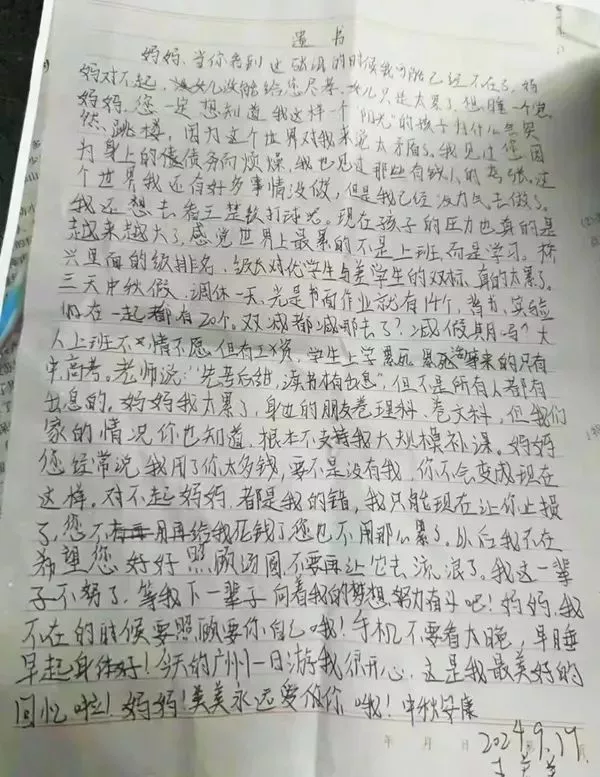 遗书
妈妈，当你看到这封信的时候我可能已经不在了，妈
妈对不起，没女儿没能给您尽孝，女儿只是太累了想睡一个觉
妈妈，您一定想知道我这样一个“阳光”的孩子为什么会突
然跳楼，因为这个世界对我来说太矛盾了。我见过您因
为身上的债债务而烦燥，我也见过那些有钱人的夸张，这
个世界我还有好多事情没做，但是我已经没力气去做了。
我还想去看三楚铁打时光。现在孩子的压力也真的是
越来越大了，感觉世界上最累的不是上班，而是学习。桥
兴里面的级排名、级长对优学生与差学生的双标，真的太累了。
三天中秋假，调休一天，光是书面作业就有14个，背书、实验
旧在一起都有20个。双减都减哪去了？减假期吗？大
人上班不情不愿，但有工资，学生上学累死累死等来的只有
中高考。老师说：“先苦后甜，读书才有出息”，但不是所有人都有
出息的。妈妈我太累了，身边的朋友卷理科、卷文科，但我们
家的情况你也知道，根本不支持我大规模补课。妈妈
您经常说，我用了你太多钱，要不是没有我，你不会变成现在
这样。对不起妈妈，都是我的错，我只能现在让你止损
了，您不用再给我花钱了您也不用那么累了。以后我不在
希望您好好照顾汤圆，不要再让它去流浪了。我这一辈
子不努了，等我下一辈子向着我的梦想努力奋斗吧！妈妈，我
不在的时候要照顾要你自己哦！手机不要看太晚，早睡
早起身体好！今天的广州一日游我很开心，这是我最美好的
回忆啦！妈妈！美美永远爱你你哦！中秋安康
年 月 日 第 页
2024.9.17